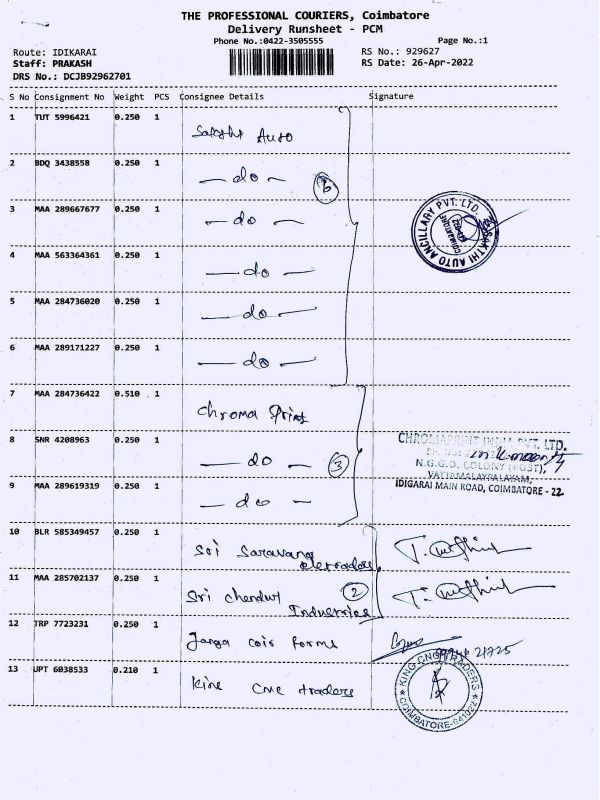 THE PROFESSIONAL COURIERS, Coimbatore
Delivery Runsheet - PCM
Phone No.:0422-3505555 Page No.:1
Route: IDIKARAI RS No.: 929627
Staff: PRAKASH RS Date: 26-Apr-2022
DRS No.: DCJB92962701
S No Consignment No Weight PCS Consignee Details Signature
1 TUT 5996421 0.250 1
Sakthi Auto
2 BDQ 3438558 0.250 1
— do —
3 MAA 289667677 0.250 1
— do —
SAKTHI AUTO ANCILLARY PVT. LTD.
COIMBATORE
4 MAA 563364361 0.250 1
— do —
5 MAA 284736020 0.250 1
— do —
6 MAA 289171227 0.250 1
— do —
7 MAA 284736422 0.510 1
Chroma Print
8 SNR 4208963 0.250 1
CHROMAPRINT INDIA PVT. LTD.
— do — 3
N.G.G.O. COLONY (POST),
VATTAMALAYPALAYAM,
9 MAA 289619319 0.250 1
IDIGARAI MAIN ROAD, COIMBATORE - 22.
— do —
10 BLR 585349457 0.250 1
Sri Saravana
11 MAA 285702137 0.250 1
2
Sri Industries
12 TRP 7723231 0.250 1
coir forms
13 UPT 6038533 0.210 1
KING ONG TRADERS
COIMBATORE-641022
traders